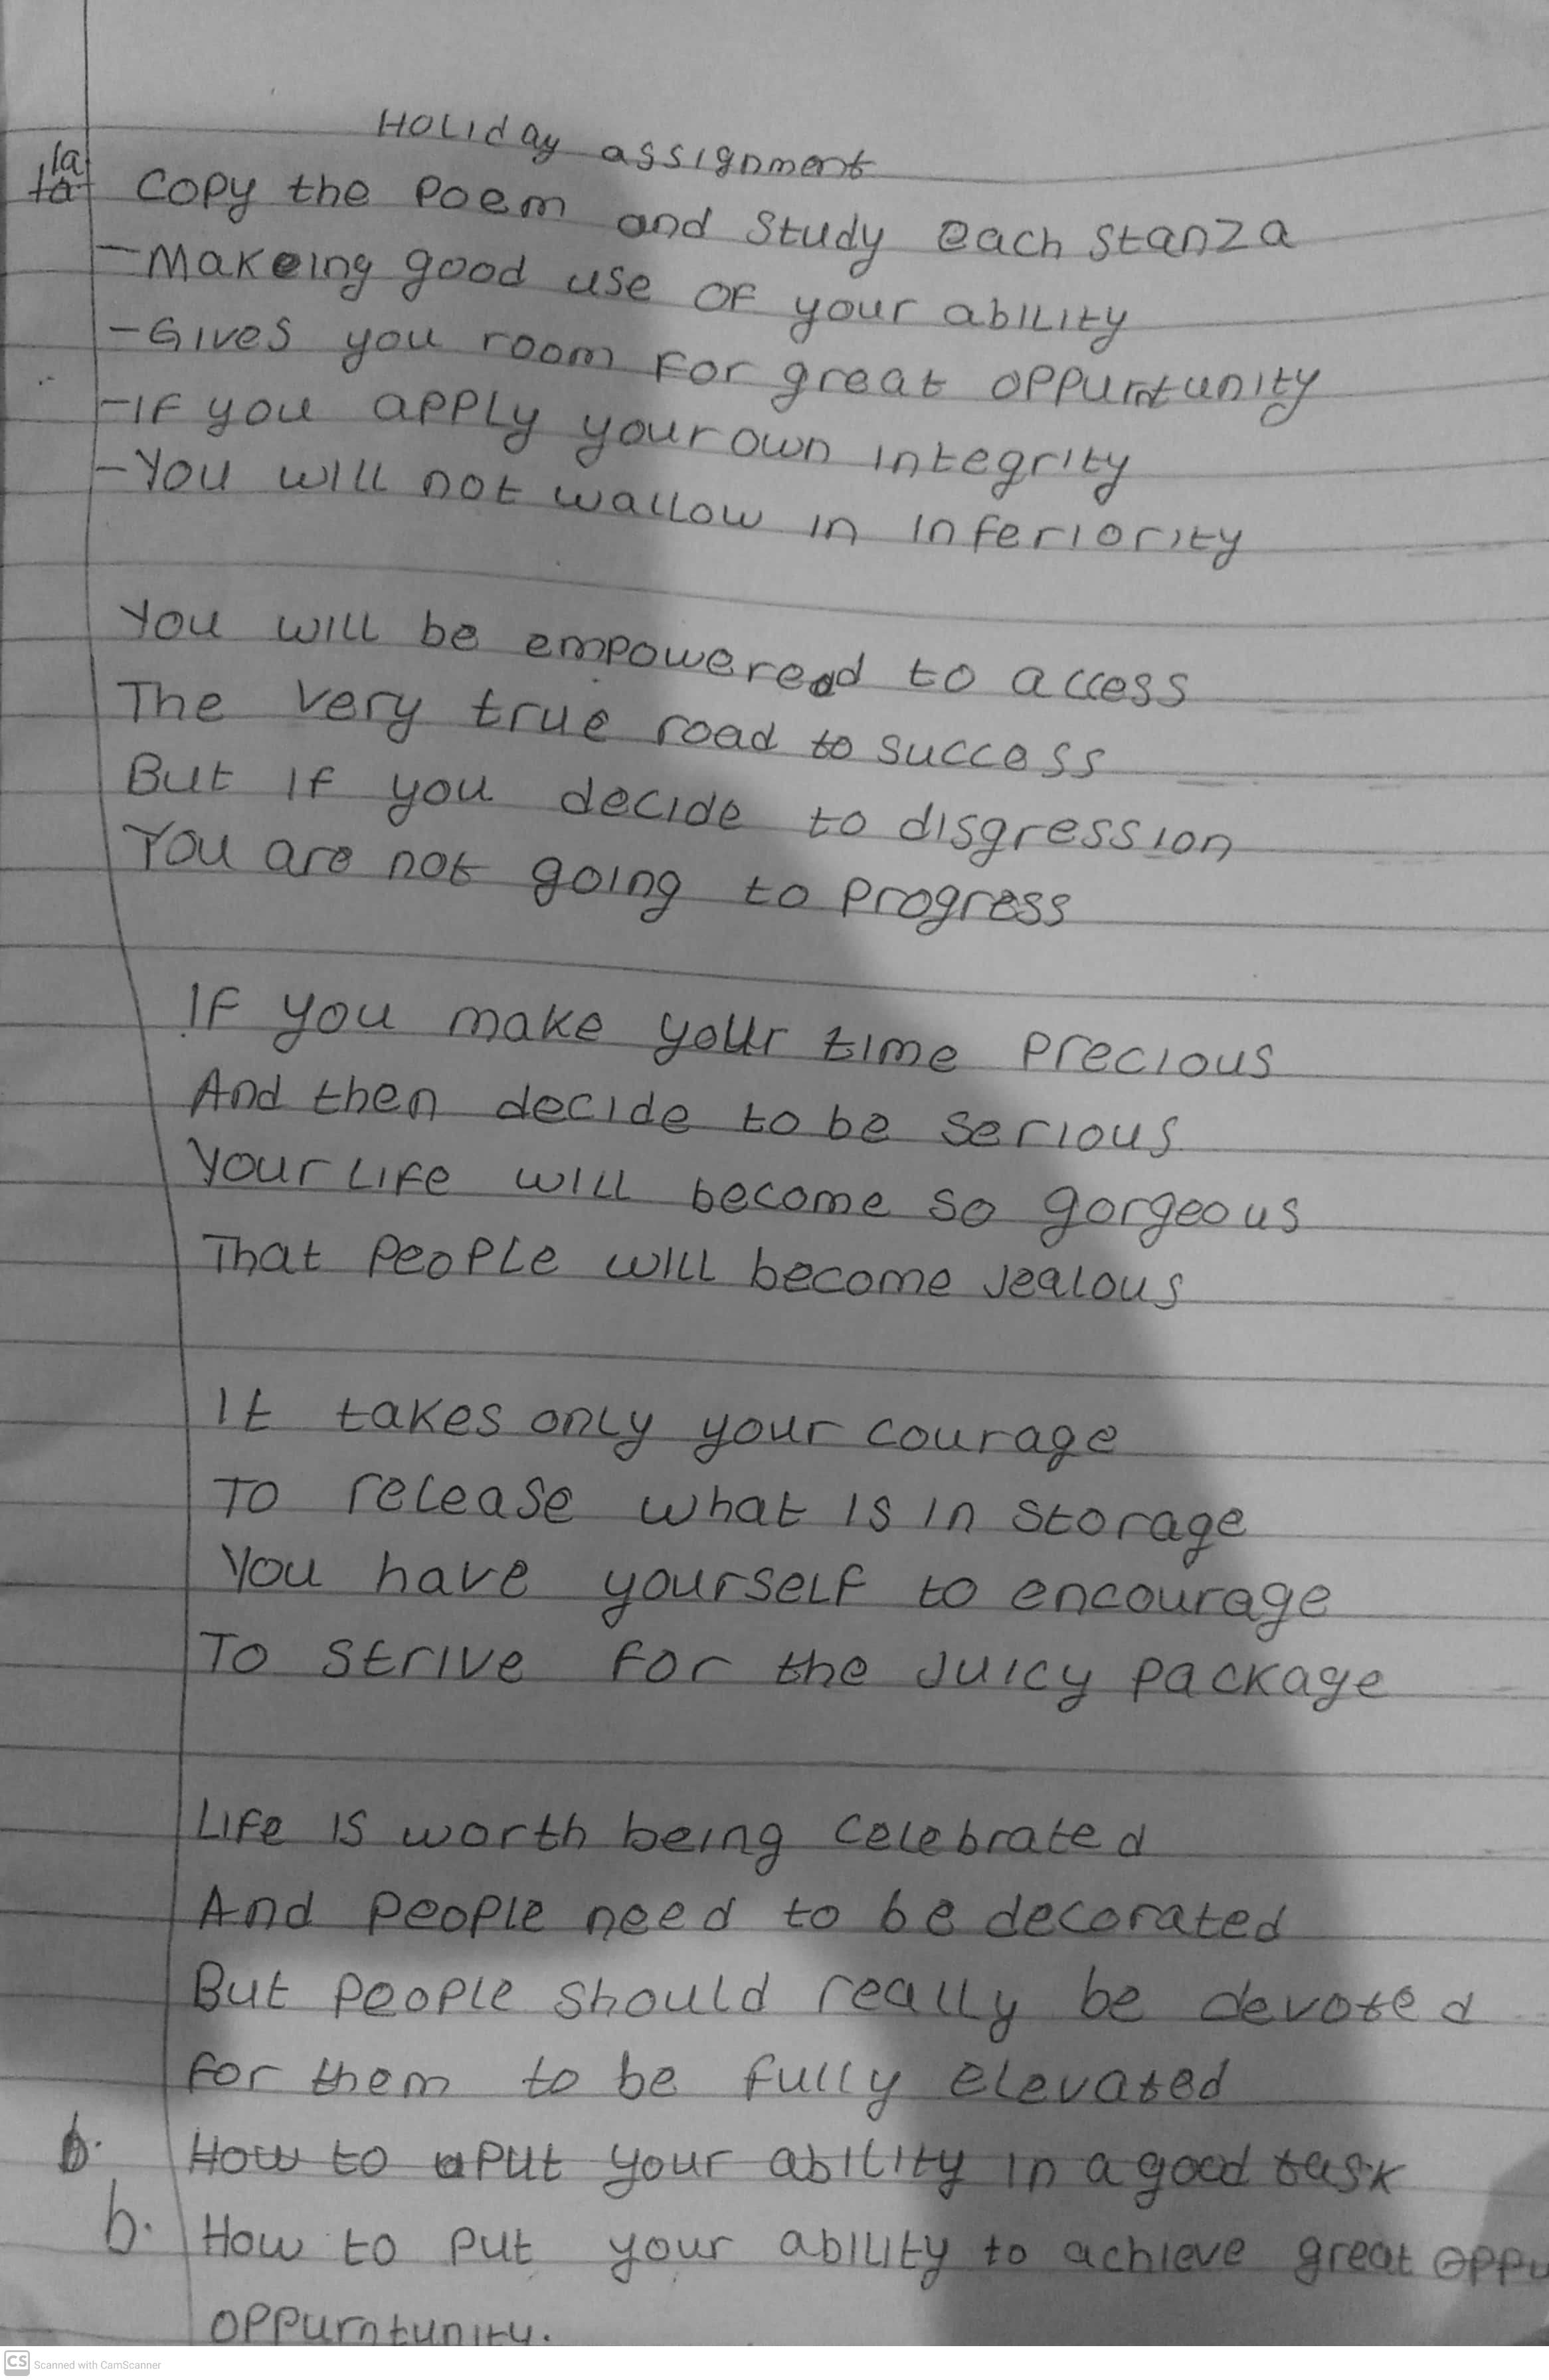 Holiday assignment
1a. Copy the Poem and study each stanza
- Makeing good use of your ability
- Gives you room for great oppurtunity
- If you apply your own integrity
- You will not wallow in inferiority
You will be empowered to access
The very true road to success
But if you decide to disgression
You are not going to progress
If you make your time precious
And then decide to be serious
Your life will become so gorgeous
That people will become jealous
It takes only your courage
To release what is in storage
You have yourself to encourage
To strive for the juicy package
Life is worth being celebrated
And people need to be decorated
But people should really be devoted
for them to be fully elevated
b. How to put your ability in a good task
b. How to put your ability to achieve great oppu
oppurntunity.
CS Scanned with CamScanner